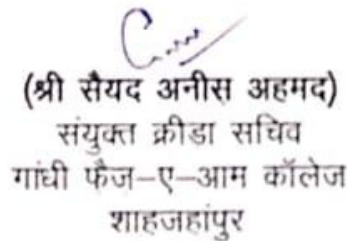 (श्री सैयद अनीस अहमद)
संयुक्त क्रीडा सचिव
गांधी फैज–ए–आम कॉलेज
शाहजहांपुर